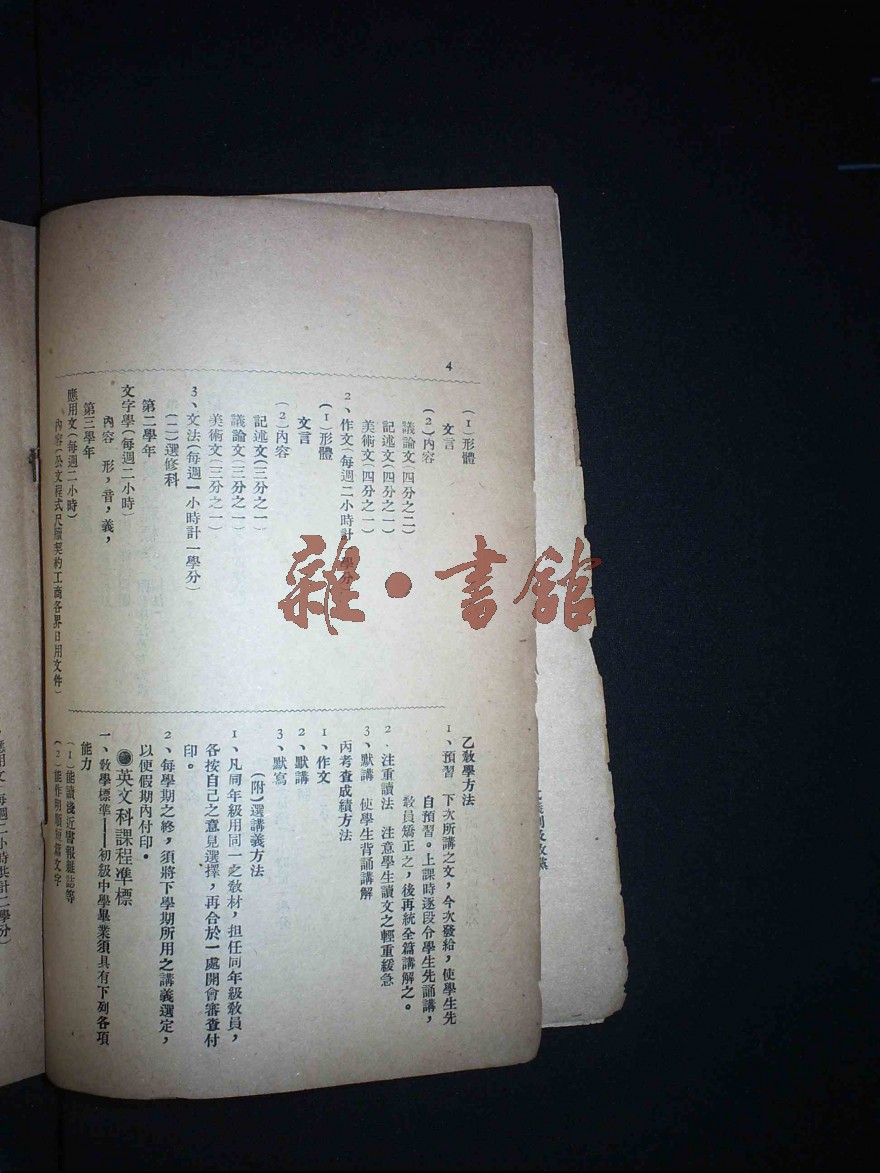 4
(1)形體
文言
(2)內容
議論文(四分之二)
記述文(四分之一)
美術文(四分之一)
2、作文(每週二小時計一學分)
(1)形體
文言
(2)內容
記述文(三分之一)
議論文(三分之一)
美術文(三分之一)
3、文法(每週一小時計一學分)
(二)選修科
第二學年
文字學(每週二小時)
內容 形,音,義,
第三學年
應用文(每週二小時)
內容(公文程式尺牘契約工商各界日用文件)
乙教學方法
1、預習 下次所講之文,今次發給,使學生先
自預習。上課時逐段令學生先誦講,
教員矯正之,後再統全篇講解之。
2 注重讀法 注意學生讀文之輕重緩急
3、默講 使學生背誦講解
丙考查成績方法
1、作文
2、默講
3、默寫
(附)選講義方法
1、凡同年級用同一之教材,担任同年級教員,
各按自己之意見選擇,再合於一處開會審查付
印。
2、每學期之終,須將下學期所用之講義選定,
以便假期內付印。
英文科課程準標
一、教學標準——初級中學畢業須具有下列各項
能力
(1)能讀淺近書報雜誌等
(2)能作明順短篇文字
應用文(每週二小時共計二學分)
雜·書館